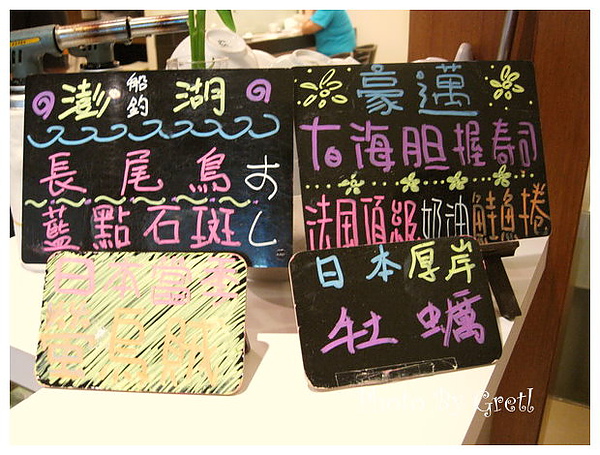 澎 船釣 湖
長尾鳥すし
藍點石斑
豪邁
海胆握壽司
法国頂級奶油鮭魚捲
日本當季
螢烏賊
日本厚岸
牡蠣
By Gretl